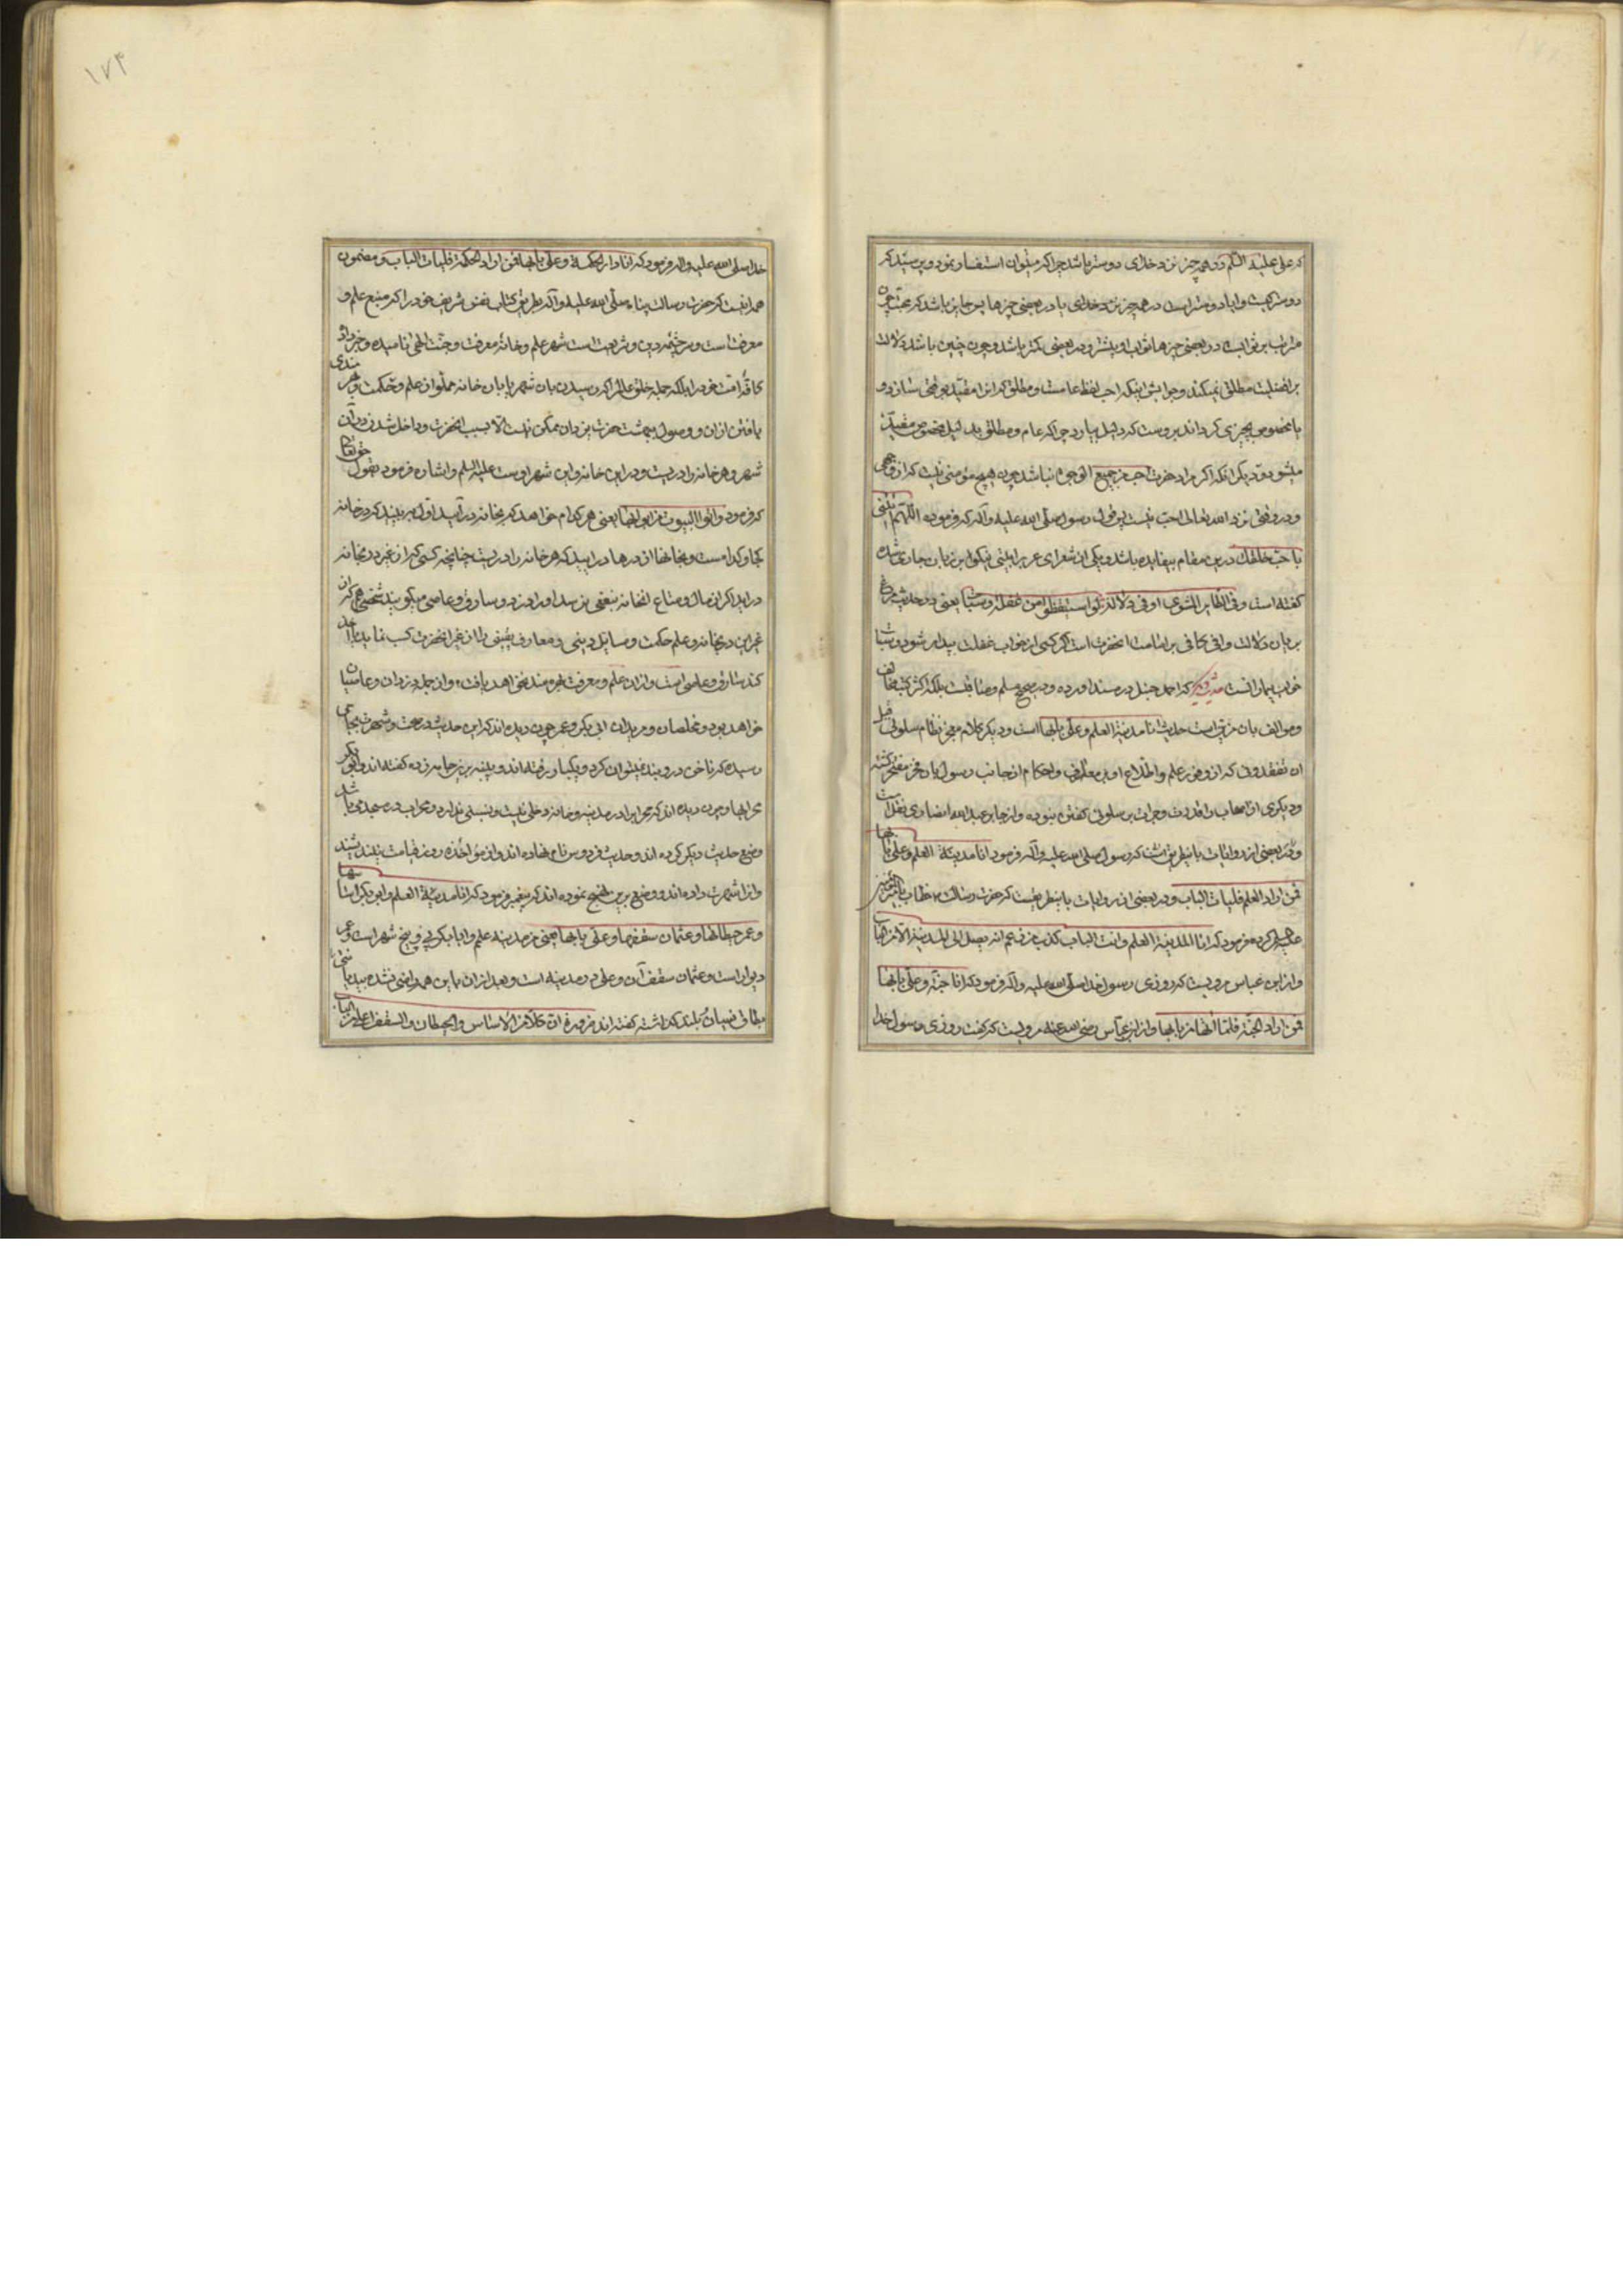 که علی علیه السلم در همه چیز نزد خدای دوستر باشد چرا که میتوان استفسار نمود و پرسید که
دوستر کیست و ایا دوستر است در همه چیز نزد خدای یا در بعضی چیزها پس جایز باشد که محبت چون
مترتب بر ثوابست در بعضی چیزها ثواب او بیشتر و در بعضی کمتر باشد و چون چنین باشد دلالت
بر افضلیت مطلق نمیکند و جوابش اینکه احب لفظ عامست و مطلق که انرا مقید بوقتی سازد و
یا مخصوص بچیزی کرداند بروست که دلیل بیارد چرا که عام و مطلق بی دلیل مخصوص و مقید
میشود و دیکر انکه اکر مراد حضرت احب من جمیع الوجوه نباشد چون هیچ مؤمنی نیست که از وجهی
و در وقتی نزد الله تعالی احب نیست پس قول رسول صلی الله علیه وآله که فرموده اللهم ائتنی
باحب خلقک درین مقام بیفایده باشد و یکی از شعرای عرب را بیتی نیکو برین زبان جاری شده
کفته است وفی الطایر المشوی اوفی دلالة لو استیقظوا من غفلة وسبات یعنی در حدیث مرغ
بریان دلالت وافی کافی بر امامت انحضرت است اکر کسی از خواب غفلت بیدار شود و سبات
خواب بیمارانست که احمد حنبل در مسند اورده و در صحیح مسلم و مناقب بلکه اکثر کتب مخالف
و موالف بان مزین است حدیث انا مدینة العلم وعلی بابها است و دیکر کلام معجز نظام سلونی قبل
ان تفقدونی که از وفور علم و اطلاع او بر معارف و احکام از جانب رسول بان فخر مفتخر کشته
و دیکری از اصحاب را قدرت و جرات بر سلونی کفتن نبوده و از جابر عبدالله انصاری نقل است
و در بعضی از روایات باینطریق است که رسول صلی الله علیه وآله فرمود انا مدینة العلم وعلی بابها
فمن اراد العلم فلیات الباب و در بعضی از روایات باینطریقست که حضرت رسالت خطاب بامیرالمؤمنین
علیه السلم کرده فرمود که انا المدینة العلم وانت الباب کذب من زعم انه یصل الی المدینة الا من الباب
و از ابن عباس مرویست که روزی رسول خدا صلی الله علیه وآله فرمود که انا جنة وعلی بابها
فمن اراد الجنة فلیاتها من بابها و از ابن عباس رضی الله عنه مرویست که کفت روزی رسول خدا
خدا صلی الله علیه واله فرمود که انا دار الحکمة وعلی بابها فمن اراد الحکمة فلیات الباب و مضمون
همه اینست که حضرت رسالت پناه صلی الله علیه وآله بطریق کتاب نفس شریف خود را که منبع علم و
معرفت است و سرچشمه دین و شریعت است شهر علم و خانه معرفت و جنت الهی نامیده و خبر داد
کافه امت خود را بلکه جمله خلق عالم را که رسیدن بان شهر یا بان خانه مملو از علم و حکمت و بهره مندی
یافتن ازان و وصول ببهشت حضرت یزدان ممکن نیست الا بسبب انحضرت و داخل شدن در ان
شهر و هر خانه را دریست و در این خانه و این شهر اوست علیه السلم و اشاره فرمود بقول حق تعالی
که فرمود واتوا البیوت من ابوابها یعنی هر کدام خواهد که بخانه در آئید اول به بینید که در خانه
کجا و کدامست و بخانها از درها در ایید که هر خانه را دریست چنانچه کسی که از غیر در بخانه
در اید اکر از مال و متاع انخانه نبعضی برسد او را دزد و سارق و عاصی میکویند شخصی هم که از
غیر این در بخانه و علم حکمت و مسایل دینی و معارف یقینی را از غیر انحضرت کسب نماید یا اخذ
کند سارق و عاصی است و ازان علم و معرفت بهره مند نخواهد یافت و از جمله دزدان و عاصیان
خواهد بود و مخلصان و مریدان ابی بکر و عمر چون دیده اند که این حدیث در صحت و شهرت بجایی
رسیده که ناخن در و بند نمیتوان کرد و یکبار رفته اند و پینه بر جامه زده کفته اند و ابوبکر
محرابها و چون دیده اند که محراب را در مدینه و خانه دخلی نیست و نسبتی ندارد و محراب در مسجد می باشد
وضع حدیث دیکر کرده اند و حدیث فردوس نام نهاده اند و از مؤاخذه روز قیامت نیندیشند
وانرا شهرت داده اند و وضع برین نهج نموده اند که پیغمبر فرمود که انا مدینة العلم وابوبکر اساسها
وعمر حیطانها وعثمان سقفها وعلی بابها یعنی من مدینه علم و ابابکر پی و بیخ شهر است و عمر
دیوار است و عثمان سقف آن و علی در مدینه است و بعد ازان باین هم راضی نشده بیت
بطاق نسیان بلند کذاشته کفته اند ضرورة ان کلا من الاساس والحیطان والسقف اعلی من الباب